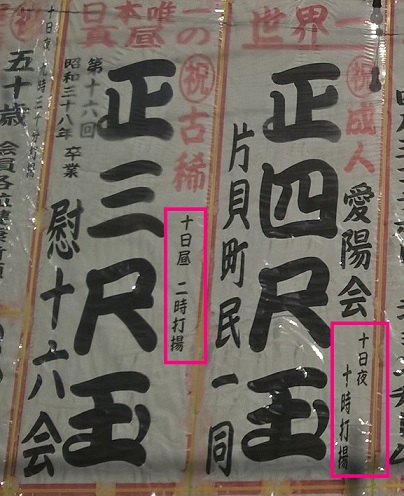 世界一
㊗成人
愛陽会
十日夜
十時打揚
正四尺玉
片貝町民一同
日本唯一の
真昼
㊗古稀
十日昼 二時打揚
正三尺玉
第十六回
昭和三十八年 卒業
慰十六会
十日夜
五十歳